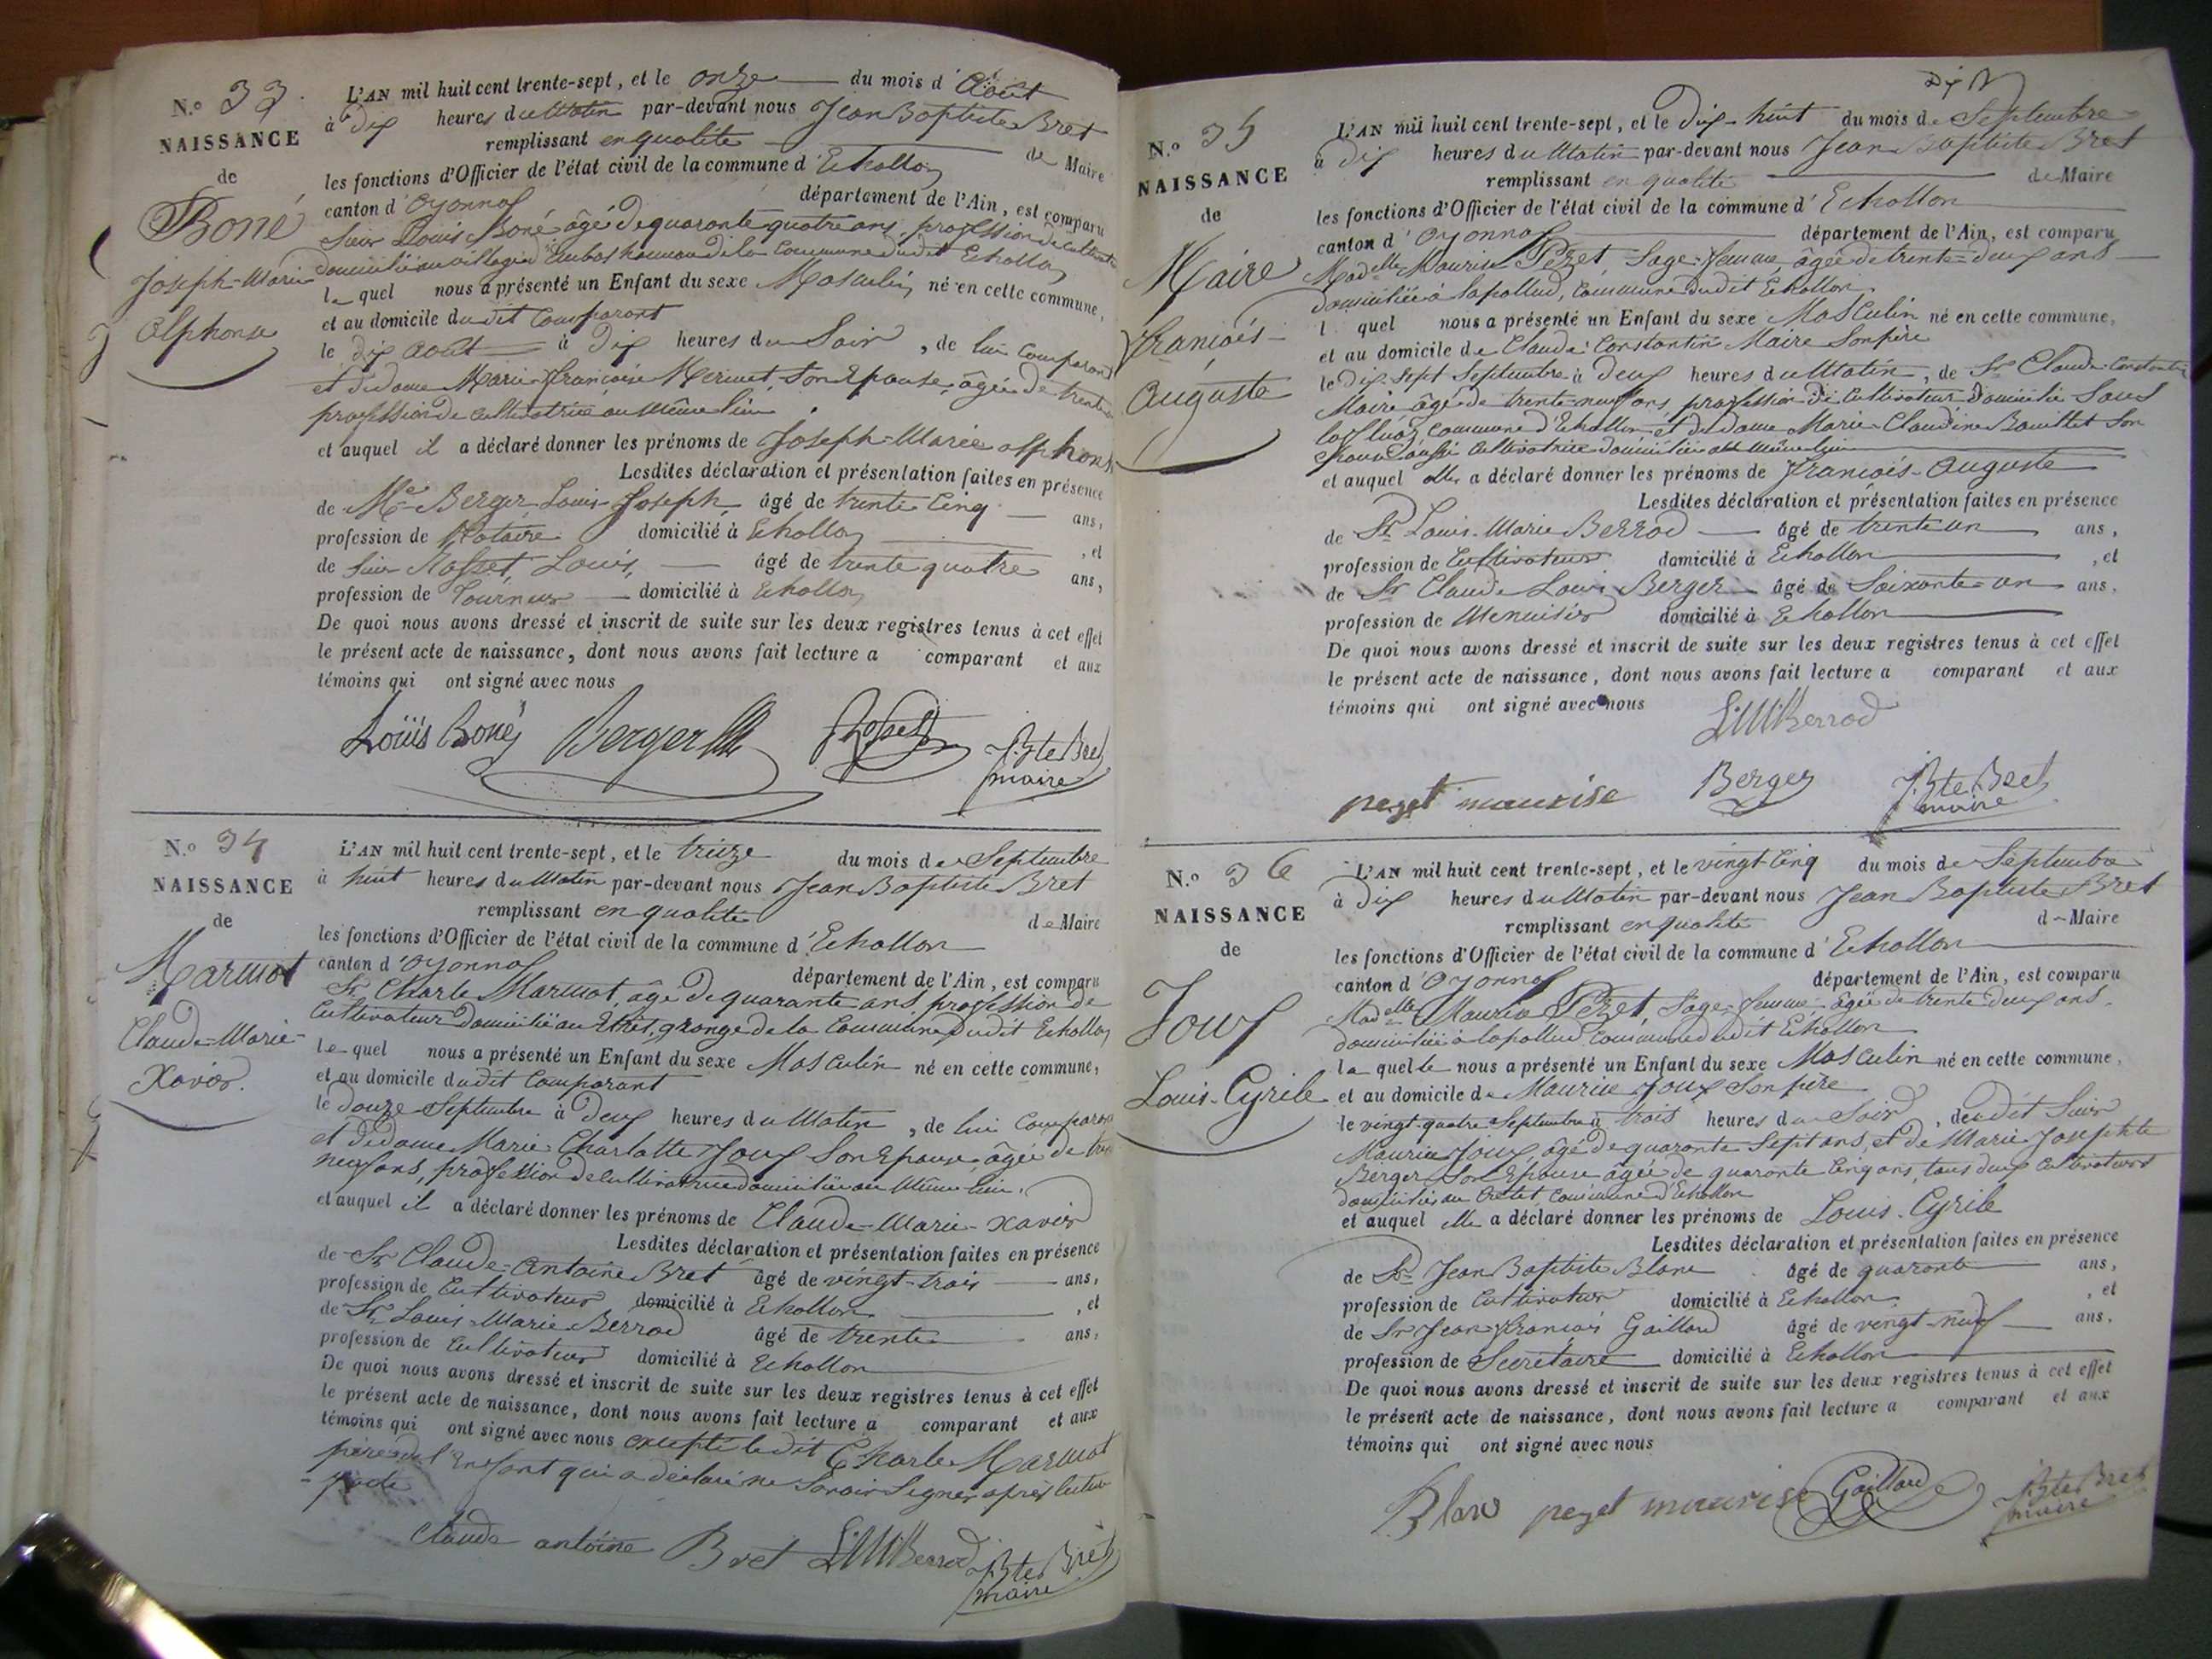 N.o 33
NAISSANCE
de
Boné
Joseph-Marie
Alphonse
L'AN mil huit cent trente-sept, et le onze du mois d'Août
à dix heures du Matin par-devant nous Jean Baptiste Bret
remplissant en qualité de Maire
les fonctions d'Officier de l'état civil de la commune d'Echallon
canton d'Oyonnax département de l'Ain, est comparu
Sieur Louis Boné âgé de quarante quatre ans, profession de cultivateur
domicilié au village de la Commune dudit Echallon
lequel nous a présenté un Enfant du sexe Masculin né en cette commune,
et au domicile dudit Comparant
le dix août à dix heures du Soir, de lui Comparant
et de dame Marie françoise Mermet, son Epouse, âgée de trente
profession de cultivatrice au même lieu.
et auquel il a déclaré donner les prénoms de Joseph-Marie alphonse
Lesdites déclaration et présentation faites en présence
de Me Berger Louis Joseph, âgé de trente cinq ans,
profession de Notaire domicilié à Echallon, et
de Sieur Rosset Louis, âgé de trente quatre ans,
profession de Tourneur domicilié à Echallon
De quoi nous avons dressé et inscrit de suite sur les deux registres tenus à cet effet
le présent acte de naissance, dont nous avons fait lecture a comparant et aux
témoins qui ont signé avec nous
Louis Boné Berger Rosset J. Bte Bret
maire
N.o 34
NAISSANCE
de
Marmot
Claude-Marie-
Xavier.
L'AN mil huit cent trente-sept, et le treize du mois de Septembre
à huit heures du Matin par-devant nous Jean Baptiste Bret
remplissant en qualité de Maire
les fonctions d'Officier de l'état civil de la commune d'Echallon
canton d'Oyonnax département de l'Ain, est comparu
Sr Charle Marmot, âgé de quarante ans, profession de
Cultivateur domicilié au grange de la Commune dudit Echallon
lequel nous a présenté un Enfant du sexe Masculin né en cette commune,
et au domicile dudit Comparant
le douze Septembre à deux heures du Matin, de lui Comparant
et de dame Marie Charlotte Joux son Epouse, âgée de
neuf ans, profession de cultivatrice domiciliée au même lieu.
et auquel il a déclaré donner les prénoms de Claude-Marie-Xavier
Lesdites déclaration et présentation faites en présence
de Sr Claude-Antoine Bret âgé de vingt-trois ans,
profession de Cultivateur domicilié à Echallon, et
de Sr Louis-Marie Berrod âgé de trente ans,
profession de Cultivateur domicilié à Echallon
De quoi nous avons dressé et inscrit de suite sur les deux registres tenus à cet effet
le présent acte de naissance, dont nous avons fait lecture a comparant et aux
témoins qui ont signé avec nous excepté ledit Charle Marmot
père de l'Enfant qui a déclaré ne savoir signer après lecture
faite
Claude antoine Bret L. M. Berrod J. Bte Bret
maire
N.o 35
NAISSANCE
de
Maire
François-
Auguste
L'AN mil huit cent trente-sept, et le dix-huit du mois de Septembre
à dix heures du Matin par-devant nous Jean Baptiste Bret
remplissant en qualité de Maire
les fonctions d'Officier de l'état civil de la commune d'Echallon
canton d'Oyonnax département de l'Ain, est comparu
Madelle Maurise Pézet Sage-femme, âgée de trente-deux ans
domiciliée à lapallud, Commune dudit Echallon
l quel nous a présenté un Enfant du sexe Masculin né en cette commune,
et au domicile de Claude Constantin Maire Son père
le dix sept Septembre à deux heures du Matin, de Sr Claude-Constantin
Maire âgé de trente-neuf ans, profession de Cultivateur domicilié sous
commune d'Echallon et de dame Marie-Claudine Bouillet Son
épouse aussi Cultivatrice domiciliée au même lieu
et auquel elle a déclaré donner les prénoms de François-Auguste
Lesdites déclaration et présentation faites en présence
de Sr Louis-Marie Berrod âgé de trente un ans,
profession de Cultivateur domicilié à Echallon, et
de Sr Claude Louis Berger âgé de Soixante-un ans,
profession de Menuisier domicilié à Echallon
De quoi nous avons dressé et inscrit de suite sur les deux registres tenus à cet effet
le présent acte de naissance, dont nous avons fait lecture a comparant et aux
témoins qui ont signé avec nous
L. M. Berrod
pezet maurise Berger J. Bte Bret
maire
N.o 36
NAISSANCE
de
Joux
Louis-Cyrile
L'AN mil huit cent trente-sept, et le vingt cinq du mois de Septembre
à dix heures du Matin par-devant nous Jean Baptiste Bret
remplissant en qualité de Maire
les fonctions d'Officier de l'état civil de la commune d'Echallon
canton d'Oyonnax département de l'Ain, est comparu
Madelle Maurise Pézet, Sage-femme, âgée de trente deux ans.
domiciliée à lapallud commune dudit Echallon
laquelle nous a présenté un Enfant du sexe Masculin né en cette commune,
et au domicile de Maurice Joux Son père
le vingt-quatre Septembre à trois heures du Soir, dudit Sieur
Maurice Joux, âgé de quarante Sept ans, et de Marie Josephte
Berger Son Epouse âgée de quarante cinq ans, tous deux cultivateurs
domiciliés au Crétet Commune d'Echallon
et auquel elle a déclaré donner les prénoms de Louis-Cyrile
Lesdites déclaration et présentation faites en présence
de Sr Jean Baptiste Blanc âgé de quarante ans,
profession de Cultivateur domicilié à Echallon, et
de Sr Jean François Gaillard âgé de vingt-neuf ans,
profession de Secrétaire domicilié à Echallon
De quoi nous avons dressé et inscrit de suite sur les deux registres tenus à cet effet
le présent acte de naissance, dont nous avons fait lecture a comparant et aux
témoins qui ont signé avec nous
Blanc pezet maurise Gaillard J. Bte Bret
maire